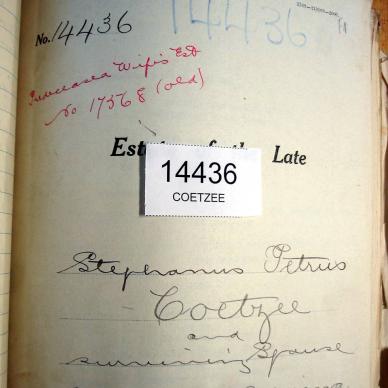 No. 14436
14436
Predeceased Wife's Est
No 17568 (old)
Estate of the Late
14436
COETZEE
Stephanus Petrus
Coetzee
and
surviving Spouse